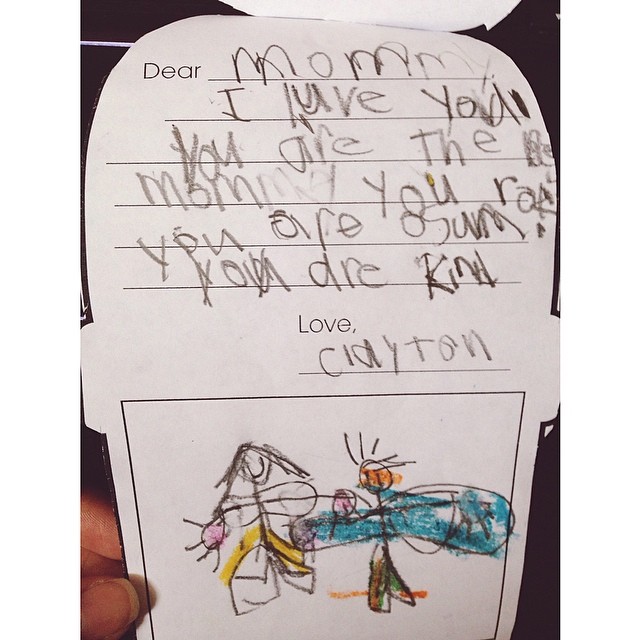 Dear Mommy
I luve you
you are the
mommy you
you are osum!
you are kind
Love,
Clayton